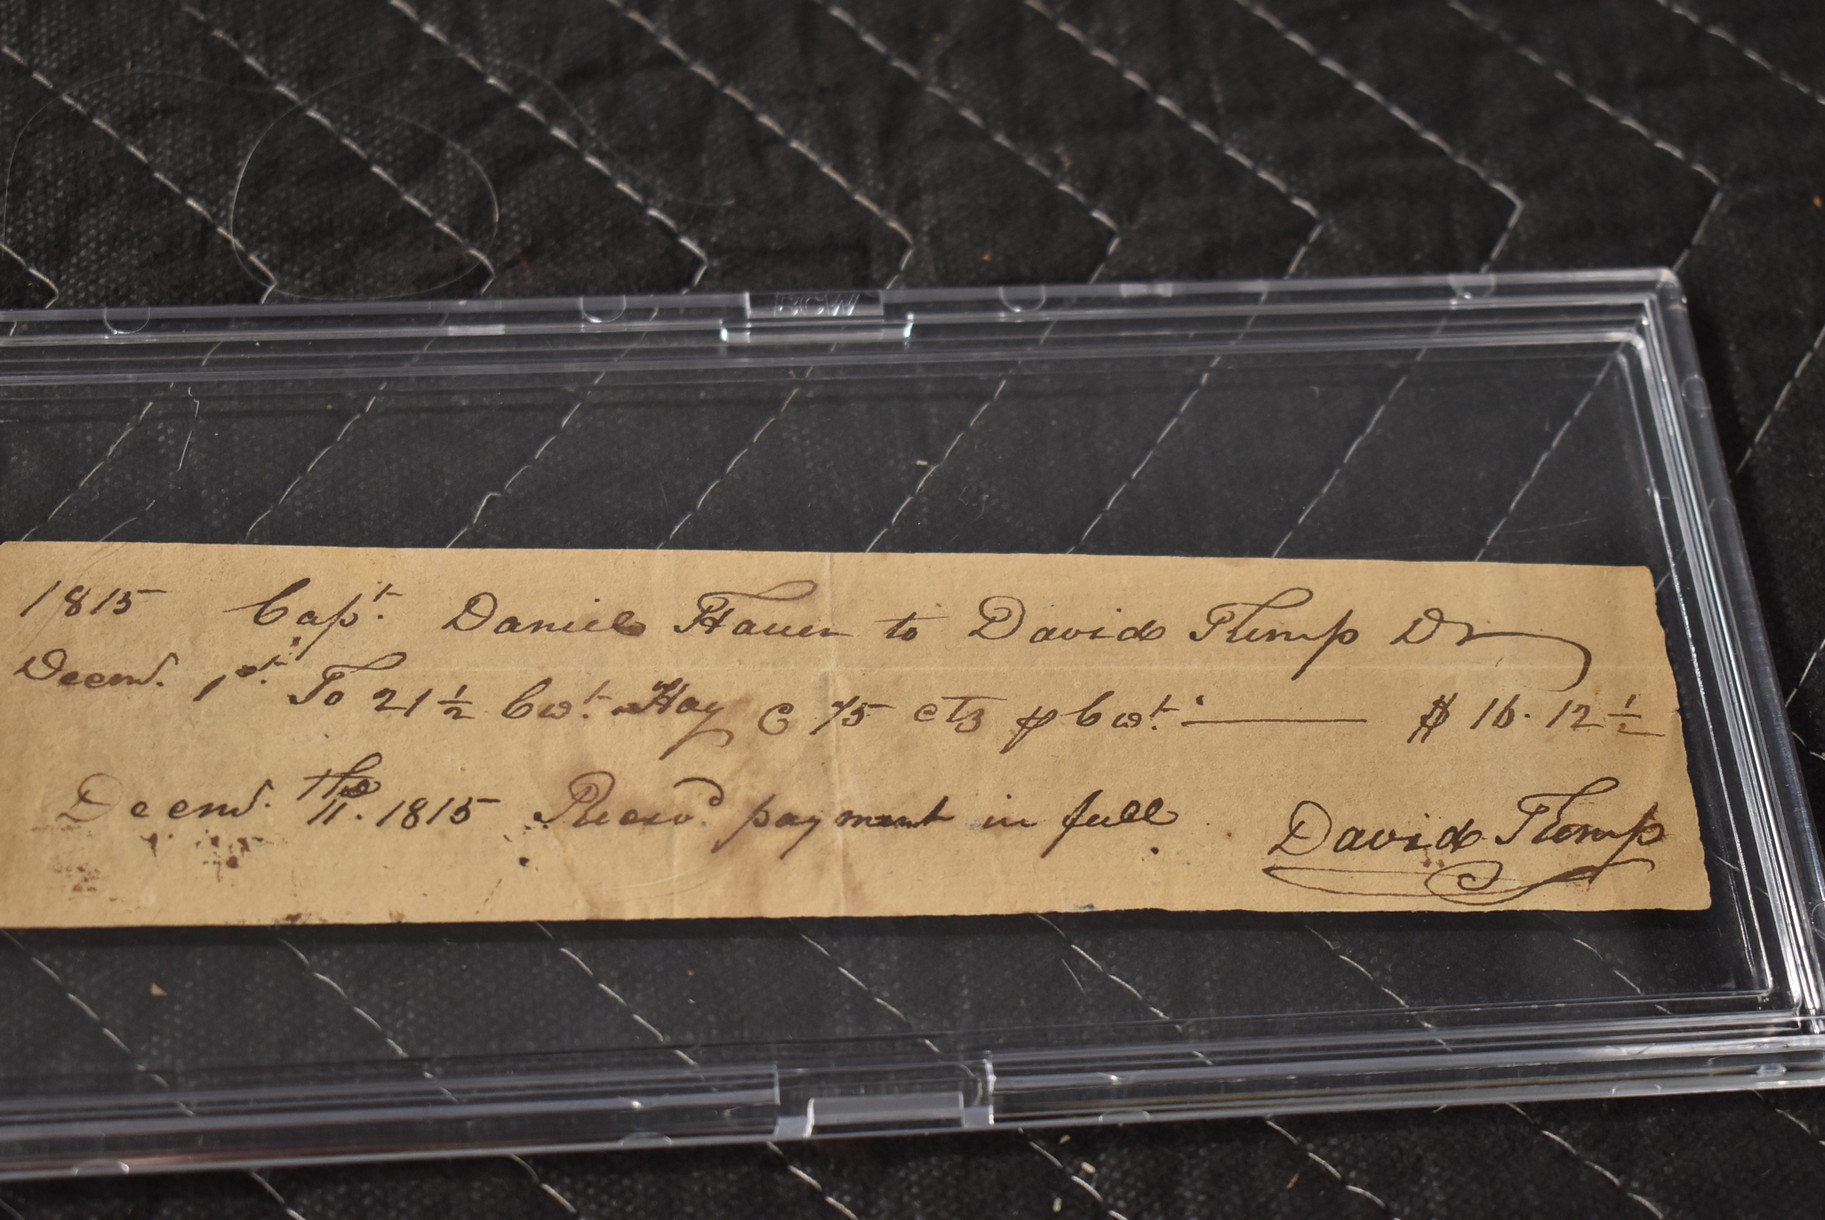 BCW
1815 Capt. Daniel Hauer to David Kemp Dr
Decem. 1st. To 21 1/2 Cwt. Hay @ 75 cts ⅌ Cwt. — $ 16.12 1/2
Decem. 11th. 1815 Recevd. payment in full David Kemp